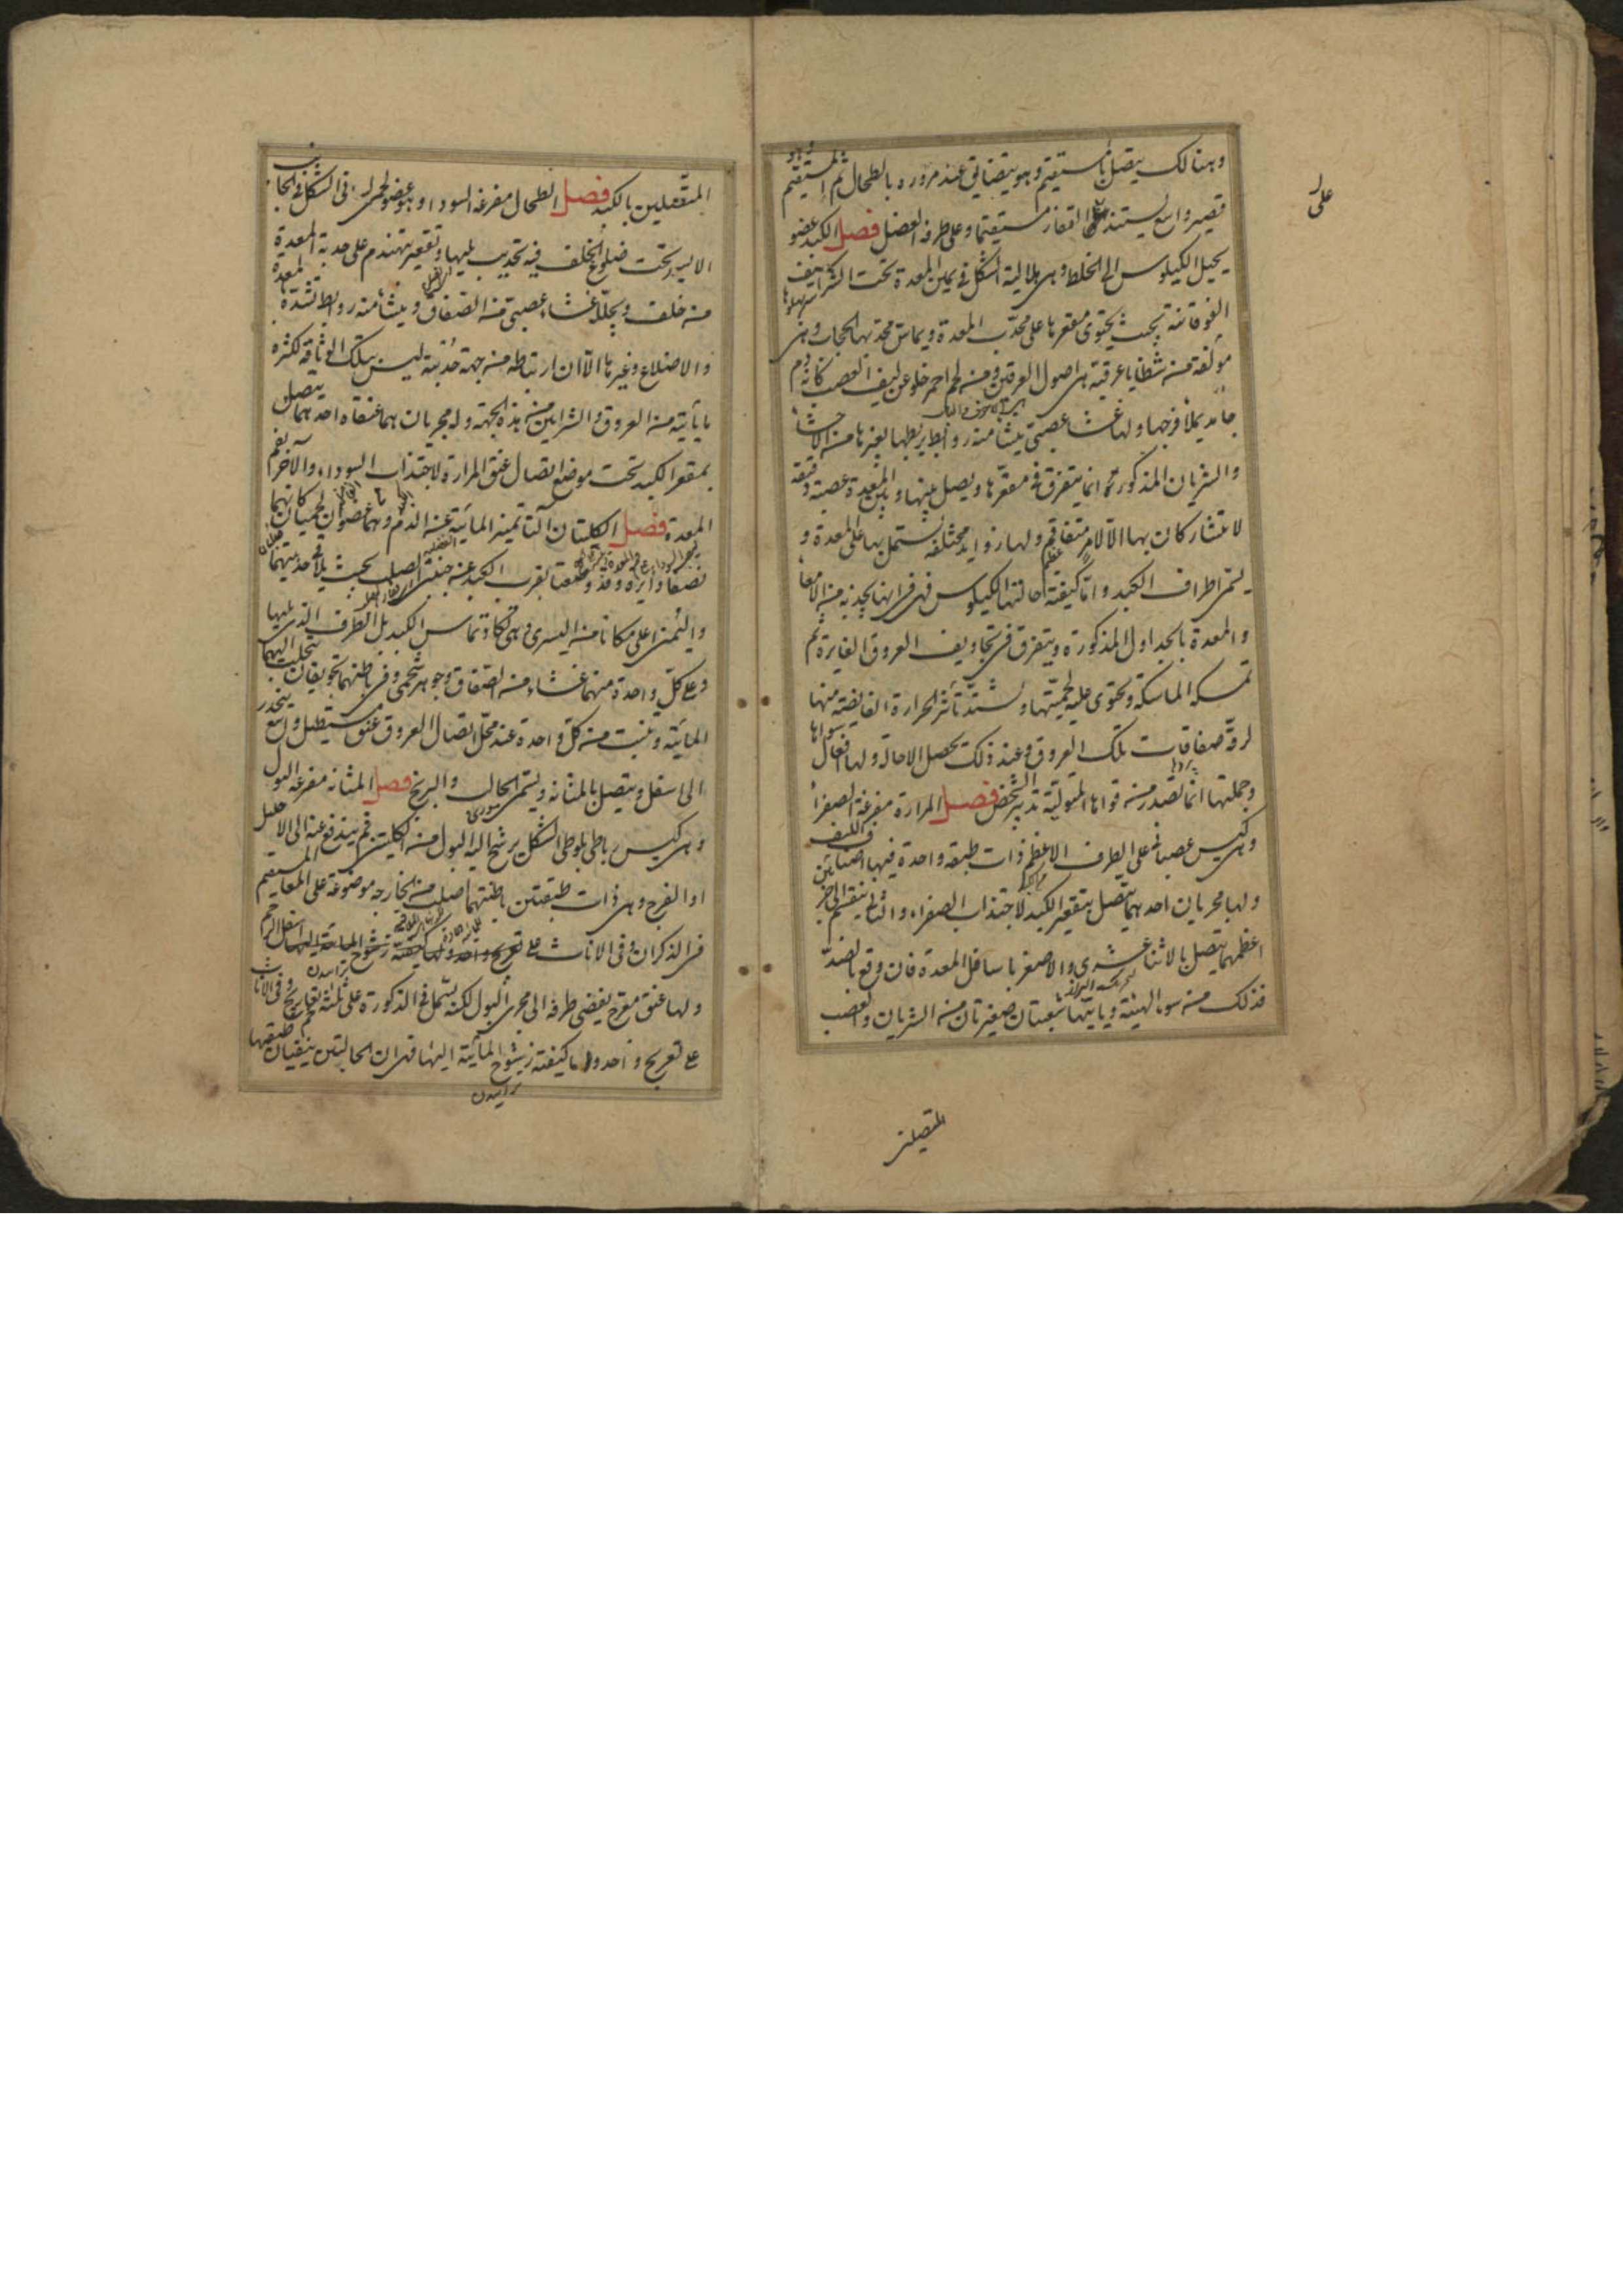 وهنالك يتصل بالمستقيم وهو يتضايق عند مروره بالطحال ثم المستقيم وهو
قصير واسع يستند على القفار مستقيما وعلى طرفه العضل فصل الكبد عضو
يحيل الكيلوس الى الخلط وهى هلالية الشكل فى يمين المعدة تحت الشراسيف
الفوقانية بحيث يحتوى مقعرها على محدب المعدة ويماس محدبها الحجاب وهى
مؤلفة من شظايا عرقية هى اصول العرقين ومن لحم احمر خلو عن ليف العصب كانه دم
جامد يملأ فرجها ولها غشاء عصبى ينشأ منه روابط يربطها بغيرها من الاحشاء
والشريان المذكور ثم انما يتفرق فى مقعرها ويصل بينها وبين المعدة عصبة دقيقة
لا تتشاركان بها الا لالم متفاقم ولها زوايد مختلفة تشتمل بها على المعدة و
يسمى اطراف الكبد واما كيفية احالتها الكيلوس فهى انها تجذبه من الامعا
والمعدة بالجداول المذكورة ويتفرق فى تجاويف العروق الغايرة ثم
تمسكه الماسكة وتحتوى عليه لحميتها ويشتد تأثير الحرارة الفايضة منها
لرقة صفاقات تلك العروق وعند ذلك تحصل الاحالة ولها افعال سواها
وجملتها انما تصدر من قواها المتولية تدبير الشخص فصل المرارة مفرغة الصفرا
وهى كيس عصبانى على الطرف الاعظم ذات طبقة واحدة فيها اصناف الليف
ولها مجريان احدهما يتصل بتقعير الكبد لاجتذاب الصفراء والثانى ينقسم الى جزئين
اعظمهما يتصل بالاثنا عشرى والاصغر باسافل المعدة فان وقع بالضد
فذلك من سوء الهيئة وياتيها شعبتان صغيرتان من الشريان والعصب
المتصلين
المتصلين بالكبد فصل الطحال مفرغة السوداء وهو عضو لحمى فى الشكل فى الجانب
الايسر تحت ضلوع الخلف فيه تحديب يليها وتقعير يتهندم على حدبة المعدة
من خلف ويجلله غشاء عصبى من الصفاق وينشأ منه روابط تشده بالمعدة
والاضلاع وغيرها الا ان ارتباطه من جهة حدبته ليس بتلك الوثاقة لكثرة
ما يأتيه من العروق والشرايين من هذه الجهة وله مجريان هما عنقاه احدهما يتصل
بمقعر الكبد تحت موضع اتصال عنق المرارة لاجتذاب السوداء والآخر بفم
المعدة فصل الكليتان آلتا تميز المائية عن الدم وهما عضوان لحميان كانهما
نصفا دايرة بقرب الكبد عن جنبتى الصلب بحيث يلاقى حدبتيهما
واليمنى اعلى مكانا من اليسرى وهى تكاد تماس الكبد بل الطرف الذى يليها
وعلى كل واحدة منهما غشاء من الصفاق وجوهر شحمى وفى باطنهما تجويفان يتحلب اليهما
المائية وينبت من كل واحدة عند محل اتصال العروق عنق مستطيل واسع ينحدر
الى اسفل ويتصل بالمثانة ويسمى الحالب والبربخ فصل المثانة مفرغة البول
وهى كيس رباطى بلوطى الشكل يرشح اليه البول من الكليتين ثم يندفع عنه الى الاحليل
او الفرج وهى ذات طبقتين باطنتهما اصلب من الخارجة موضوعة على المعاء المستقيم
فى الذكران وفى الاناث على
ولها عنق معرج يفضى طرفه الى مجرى البول لكنه يشتمل فى الذكورة على ثلثة تعاريج وفى الاناث
على تعريج واحد واما كيفية رشوح المائية اليها فهى ان الحالبين ينفيان طبقتها